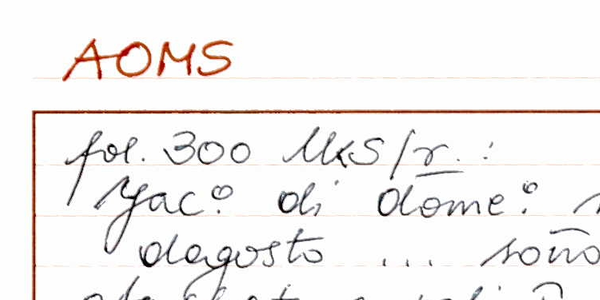 AOMS
fol. 300 MKS/r. :
Yac.º di dōme.º
dagosto ... soño